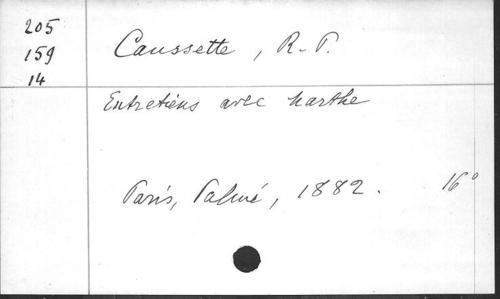 205
159
14
Caussette, R.P.
Entretiens avec Marthe
Paris, Palmé, 1882.
16°